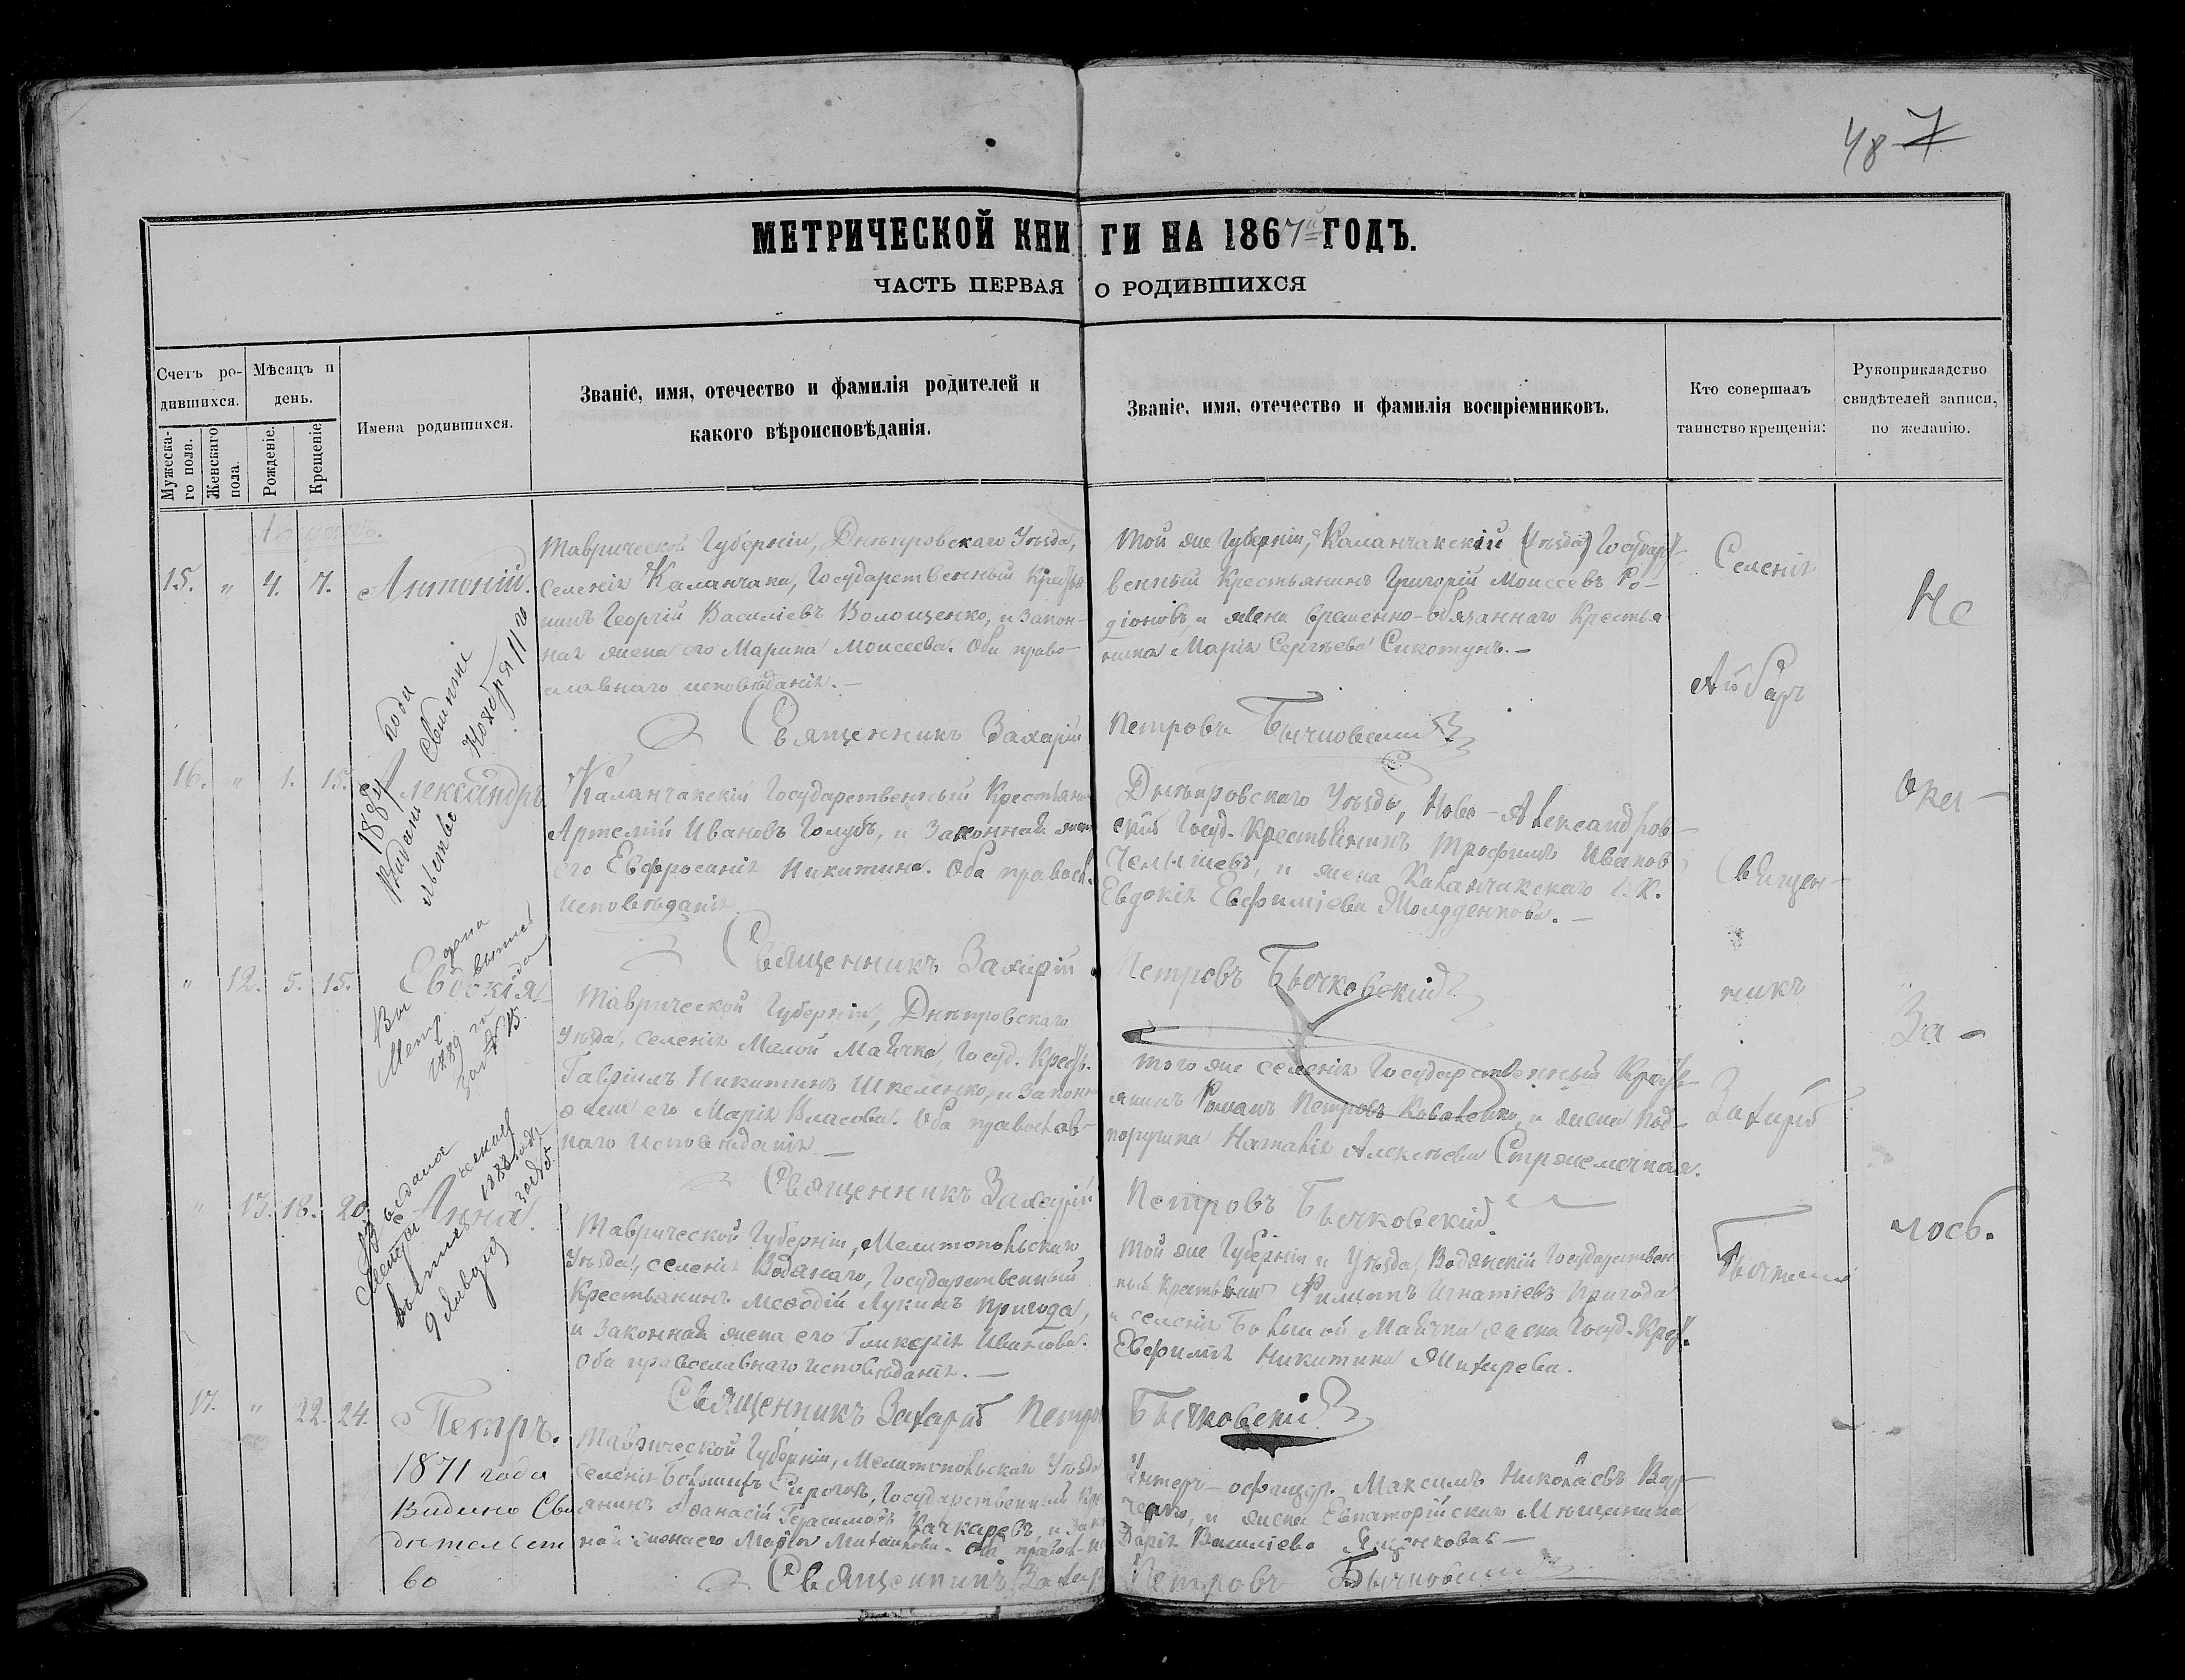 48 7
МЕТРИЧЕСКОЙ КНИГИ НА 1867й ГОДЪ.
ЧАСТЬ ПЕРВАЯ О РОДИВШИХСЯ
Счетъ родившихся.
Мужескаго пола.
Женскаго пола.
Мѣсяцъ и день.
Рожденіе.
Крещеніе.
Имена родившихся.
Званіе, имя, отечество и фамилія родителей и
какого вѣроисповѣданія.
Званіе, имя, отечество и фамилія воспріемниковъ.
Кто совершалъ
таинство крещенія:
Рукоприкладство
свидѣтелей записи,
по желанію.
15. " 4. 7. Антоній.
Таврической Губерніи, Днѣпровскаго Уѣзда,
селенія Каланчака, Государственный Крестья
нинъ Георгій Василіевъ Волощенко, и закон-
ная жена его Марина Моисеева. Оба право-
славнаго исповѣданія.—
Той же Губерніи, Каланчакскій (уѣзда) Государст-
венный Крестьянинъ Григорій Моисеевъ Ро-
діоновъ, и жена временно-обязаннаго Крестья
нина Марія Сергѣева Сикотунъ.—
Священникъ Захарій Петровъ Бычковскій
16. " 1. 15. Александръ
1884 года
Выданъ Свидѣтѣ
льство Ноября 11го
Каланчакскій Государственный Крестьяни
Артемій Ивановъ Голубъ, и законная жена
его Евфросинія Никитина. Оба правосл.
исповѣданія
Днѣпровскаго Уѣзда, Ново-Александров-
скій Госуд. Крестьянинъ Трофимъ Иванов
и жена Каланчакскаго Г. К.
Евдокія Евфиміева
Священникъ Захарій Петровъ Бычковскій
" 12. 5. 15. Евдокія
Вы дана
Метр. выпись
1889 года
за №
Таврической Губерніи, Днѣпровскаго
Уѣзда, селенія Малой Маячки, Госуд. Крест.
Гавріилъ Никитинъ Шкеленко, и законн
жена его Марія Власова. Оба православ-
наго исповѣданія.—
того же селенія Государственный Кресть-
янинъ Романъ Петровъ Коваленко, и жена под-
поручика Наталія Алексѣева Стрижемечная.
Священникъ Захарій Петровъ Бычковскій
" 13. 18. 20. Анна.
выдана
Метрическая
выпись 1886 года
9 Января за № 5.
Таврической Губерніи, Мелитопольскаго
Уѣзда, селенія Водянаго, Государственный
Крестьянинъ Меѳодій Лукинъ Пригода,
и законная жена его Гликерія Иванова.
Оба православнаго исповѣданія.—
Той же Губерніи и Уѣзда, Водянскій Государствен
ный Крестьянинъ Филиппъ Игнатіевъ Пригода
и селенія Большой Маячки жена Госуд. Крест.
Евфимія Никитина
Священникъ Захарій Петровъ Бычковскій
17. " 22. 24. Петръ.
1871 года
Видано Сви
дѣтельст
во
Таврической Губерніи, Мелитопольскаго Уѣзда
селенія Большихъ Сирогозъ, Государственный Кре
янинъ Аѳанасій Герасимовъ Качкаревъ, и зако
ная жена его Марія Михайлова. Оба правосл. ис
Унтеръ-офицеръ Максимъ Николаевъ
и жена Евпаторійскаго Мѣщанина
Дарія Василіева Яценкова—
Священникъ Захарій Петровъ Бычковскій
Селенія
Айбаръ
Священ-
никъ
Захарій
Бычковскій
Не
ока-
за-
лось.